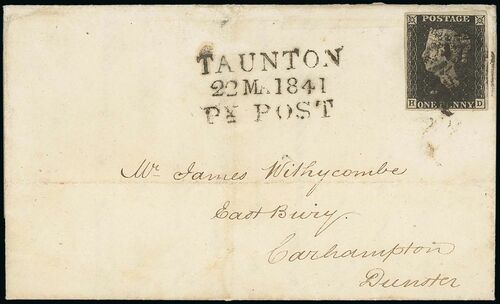 POSTAGE
H ONE PENNY D
TAUNTON
22 MA 1841
PY POST
Mr James Withycombe
East Bury
Carhampton
Dunster